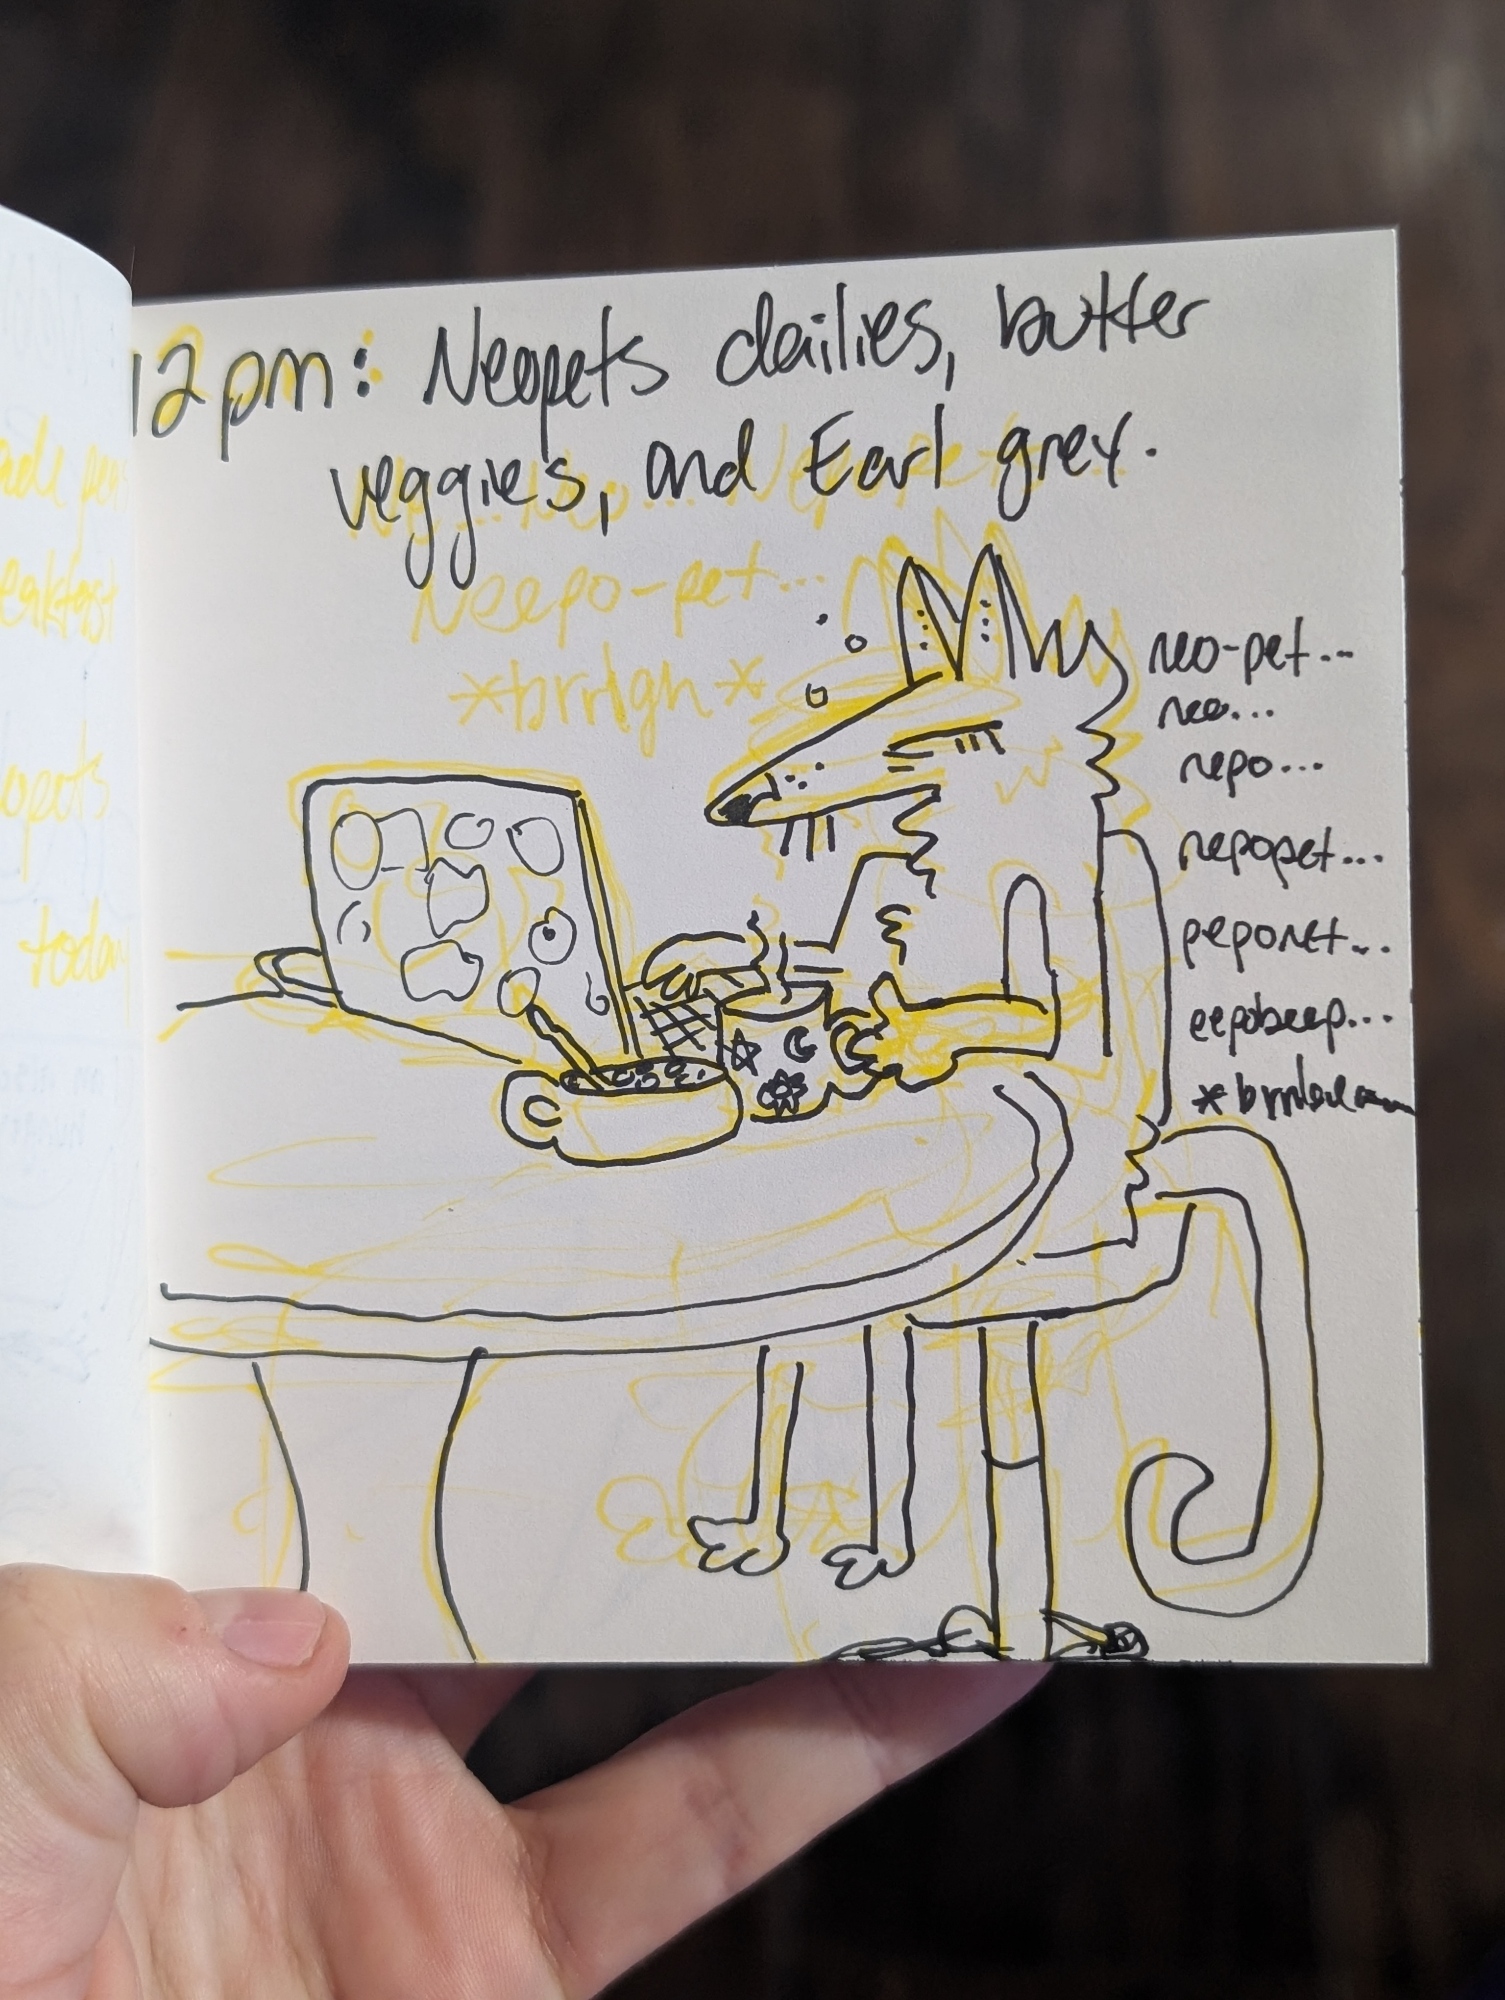 12pm: Neopets dailies, butter
veggies, and Earl grey.
Neepo-pet...
*brrlgh*
neo-pet...
neo...
nepo...
nepopet...
peponet...
eepobeep...
eakfast
opets
today